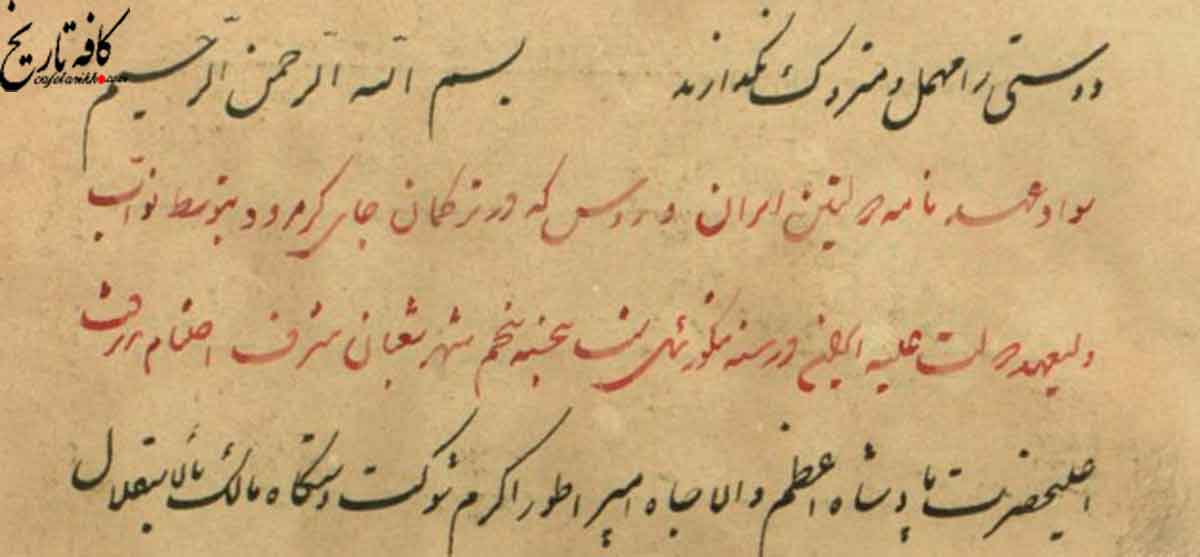 کافه تاریخ
cafetarikh.com
دوستی را مهمل و متروک نگذارند بسم الله الرحمن الرحیم
سواد عهد نامه دولتین ایران و روس که در ترکمان جای کرمرود بتوسط نواب
ولیعهد دولت علیه در سنه شب پنجشنبه پنجم شهر شعبان شرف اختتام پذیرفت
اعلیحضرت پادشاه اعظم والاجاه امپراطور اکرم شوکت دستگاه مالک بالاستقلال